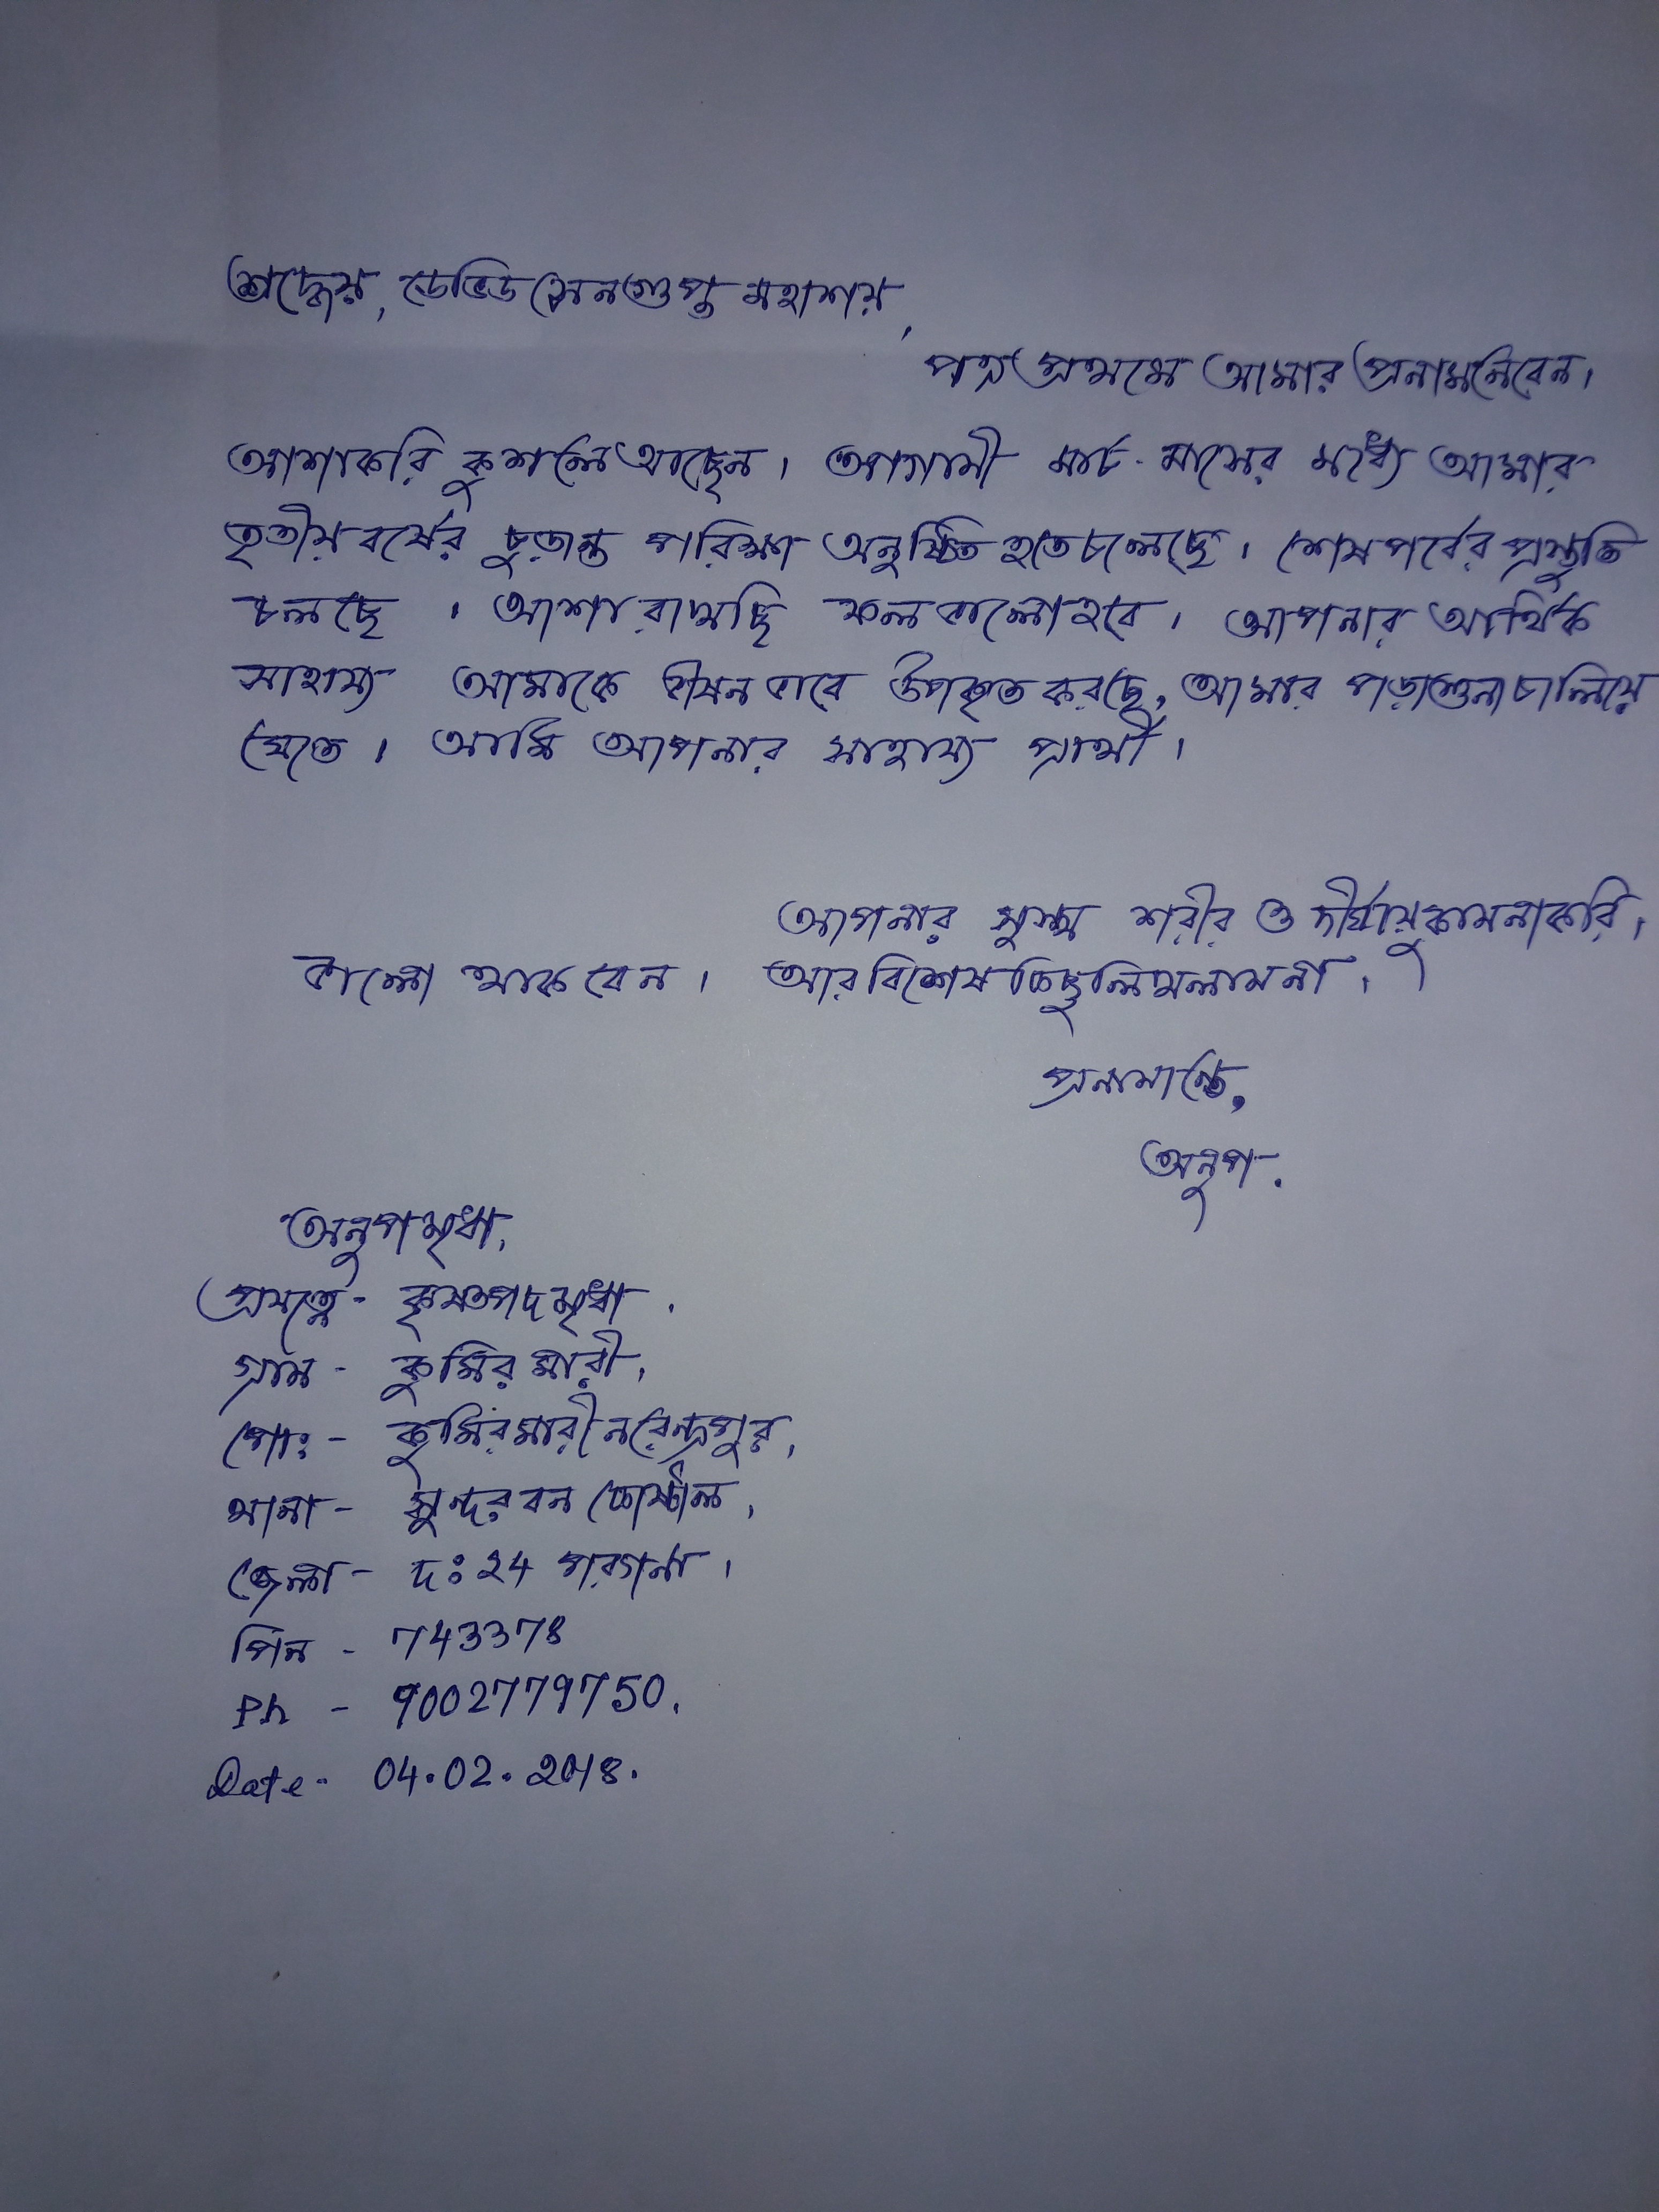 শ্রদ্ধেয়, ডেভিড সেনগুপ্ত মহাশয়,
পত্র প্রথমে আমার প্রনাম নেবেন।
আশাকরি কুশলে আছেন। আগামী মার্চ মাসের মধ্যে আমার
তৃতীয় বর্ষের চুড়ান্ত পরিক্ষা অনুষ্ঠিত হতে চলেছে। শেষ পর্বের প্রস্তুতি
চলছে । আশা রাখছি ফল ভালো হবে। আপনার আর্থিক
সাহায্য আমাকে ভীষন ভাবে উপকৃত করছে, আমার পড়াশুনা চালিয়ে
যেতে। আমি আপনার সাহায্য প্রার্থী।
আপনার সুস্থ শরীর ও দীর্ঘায়ু কামনা করি।
ভালো থাকবেন। আর বিশেষ কিছু লিখলাম না।
প্রনামান্তে,
অনুপ.
অনুপ মৃধা,
প্রযত্নে - কৃষ্ণপদ মৃধা.
গ্রাম - কুমির মারী,
পোঃ - কুমিরমারী নরেন্দ্রপুর,
থানা - সুন্দরবন কোস্টাল,
জেলা - দঃ 24 পরগনা।
পিন - 743378
Ph - 9002779750.
Date - 04.02.2018.